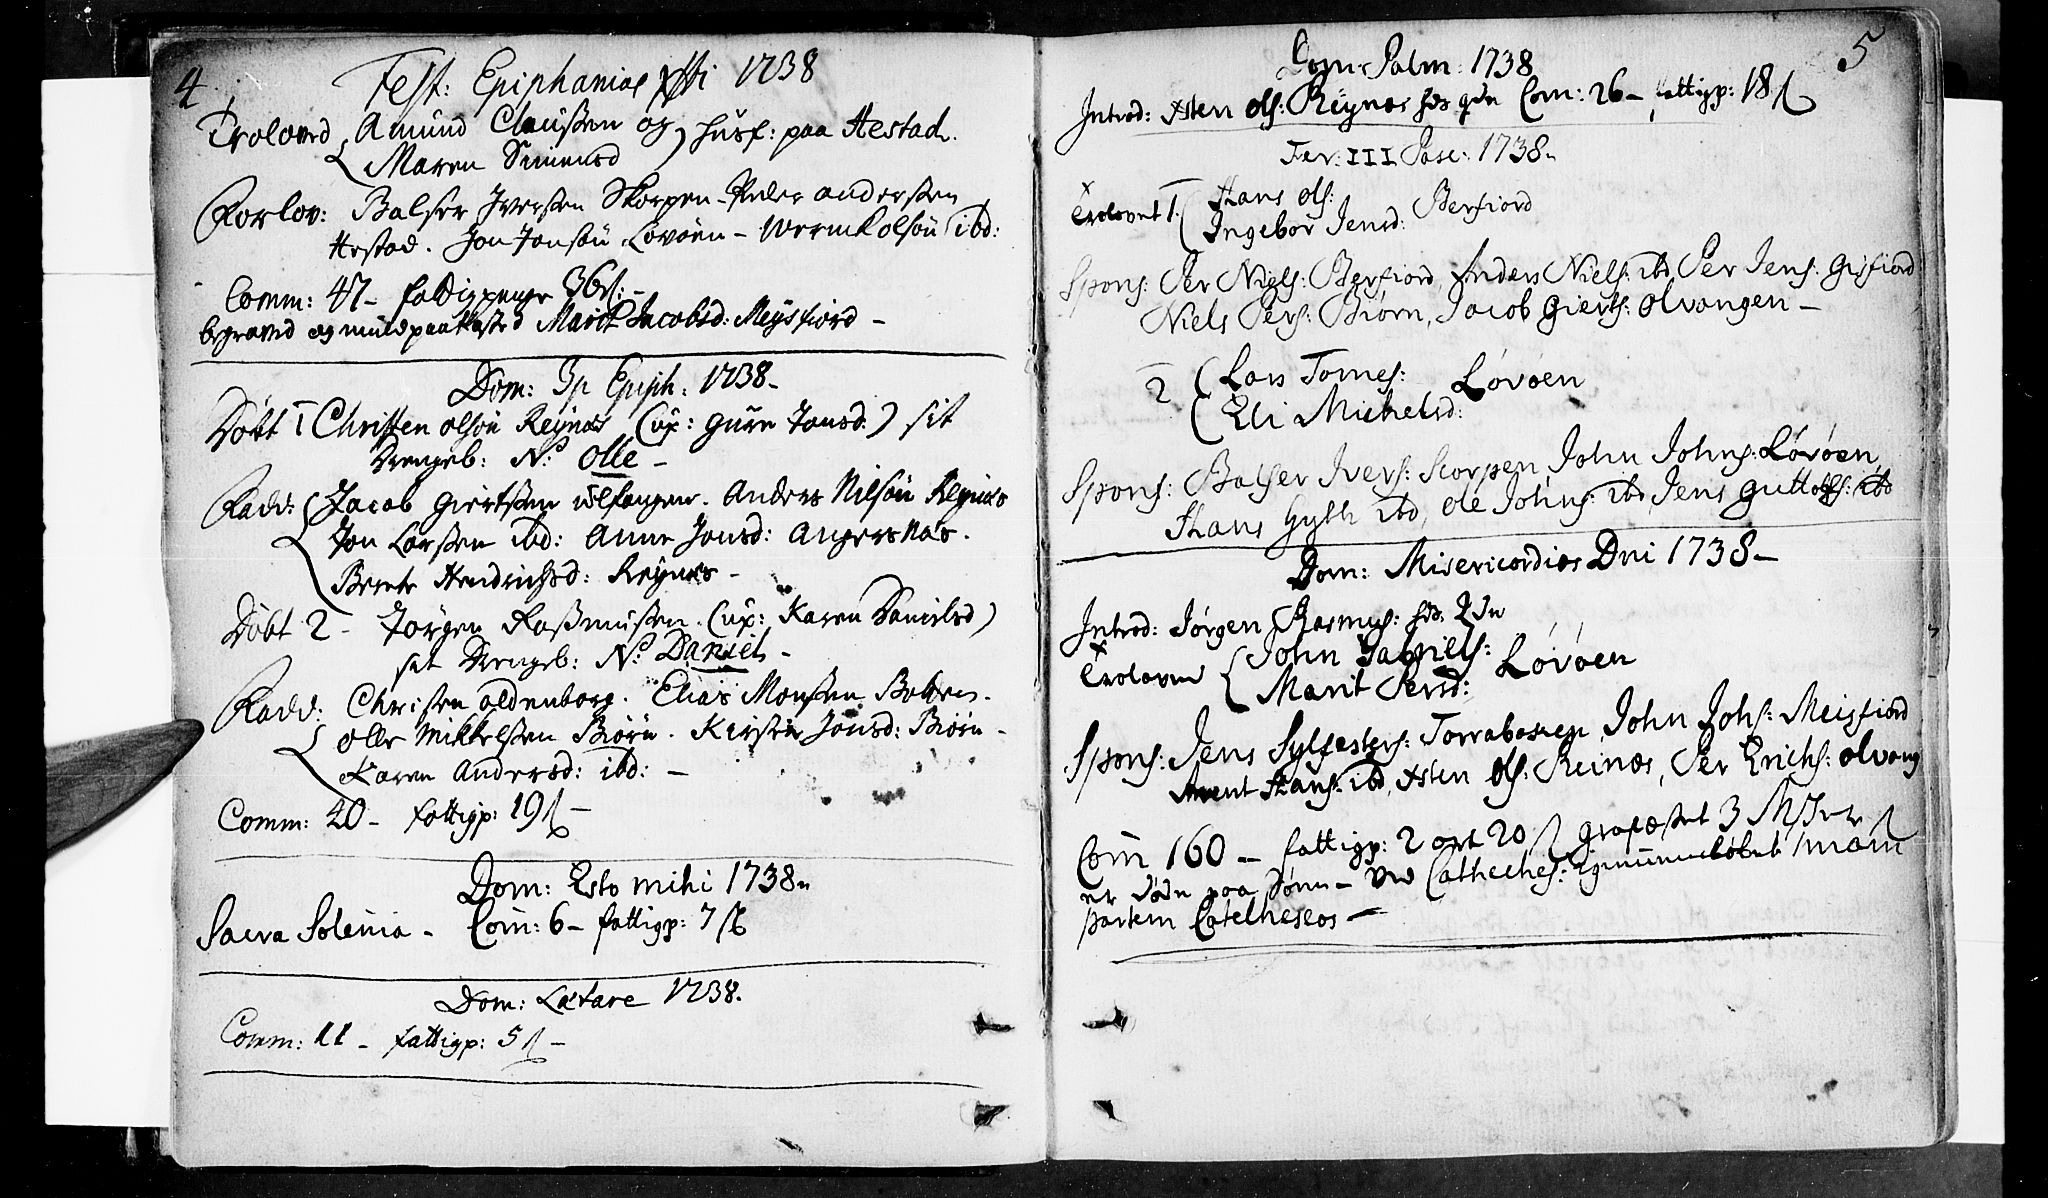 4
Fest: Epiphaniæ Xsti 1738
Trolovd Amund Claussen og
Maren Simensd husf: paa Hestad.
Forlov: Balser Iverssen Skorpen - Peder anderssen
Hestad. Jon Jonsøn Løvøen - olsøn ibd:
Comm: 47 - fattigpenge 36 ß: -
begravd og muld paakasted Marit Jacobsd: Meysfiord -
Dom: 3 p Epiph: 1738.
Døbt 1 Christen olsøn Reynæs (ux: gurn Jonsd:) sit
Drengeb: N: Olle -
Fadd: Jacob giertssen ølfangen. Anders Nilsøn Reynæs
Jon Larssen ibd: Anne Jonsd: Angersnæs.
Berete Hendrichsd: Reynæs -
Døbt 2 - Jørgen Rasmussen (ux: Karen Danielsd)
sit Drengeb: N: Daniel -
Fadd: Christen oldenborg. Elias Monssen
olle Mikkelssen Biørn. Kirsten Jonsd: Biørn -
Karen Andersd: ibd: -
Comm: 20 - fattigp: 19 ß -
Dom: Esto mihi 1738
Sacra Solenia - Com: 6 - fattigp: 7 ß
Dom: Lætare 1738.
Comm: 11 - fattigp: 5 ß -
5
Dom: Palm: 1738
Introd: Xsten Ols: Reynæs hs qde Com: 26 - fattigp: 18 ß
Fer: III Pasc: 1738
Trolovet 1. Hans Ols:
Ingebor Jensd: Berfiord
Spons: Per Niels: Berfiord, Anders Niels: ibd, Per Jens: gisfiord
Niels Pers: Biørn, Jacob giertS: Olvangen -
2 Lars Tomes: Løvøen
Eli Michelsd:
Spons: Balser Ivers: Scorpen, John Johns: Løvøen
Hans ibd, Ole Johns: ibd, Jens guttolfs: ibd
Dom: Misericordias Dni 1738 -
Introd: Jørgen Rasmus: hs. qde
Trolovet John Gabriels:
Marit Persd: Løvøen
Spons: Jens Sylfesters: John Johs: Meisfiord
Hans: ibd, Xsten Ols: Reinæs, Per Erichs: Olvang
Com 160 - fattigp: 2 ort 20 ß 3
er døde paa - ved Catheches:
partem Catecheseos -